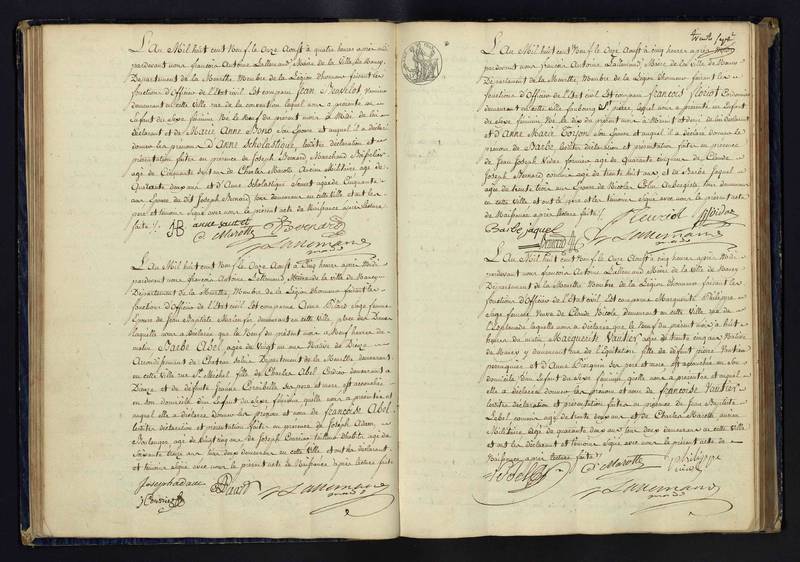 L'An Mil huit cent Neuf le Onze Aoust à quatre heures après midi
pardevant nous françois Antoine Lallemand Maire de la Ville de Nancy
Département de la Meurthe, Membre de la Légion d'honneur faisant les
fonctions d'Officier de l'Etat civil Est comparu Jean
demeurant en cette Ville rue de la convention lequel nous a présenté un
Enfant du sexe féminin Né le Neuf du présent mois à Midi de lui
déclarant et de Marie Anne Bono son Epouse et auquel il a déclaré
donner les prénoms d'Anne Scholastique, lesdites déclaration et
présentation faites en présence de Joseph Bernard Marchand
âgé de Cinquante Sept ans de Charles Marotte Ancien Militaire âgé de
Quarante deux ans et d'Anne Scholastique âgée de Cinquante
ans Epouse du dit Joseph Bernard tous demeurant en cette Ville et ont les
père et témoins signé avec nous le présent acte de Naissance après lecture
faite
C. Marotte
Lallemand
L'An Mil huit cent Neuf le Onze Aoust à Cinq heures après Midi
pardevant nous françois Antoine Lallemand Maire de la ville de Nancy
Département de la Meurthe, Membre de la Légion d'honneur faisant les
fonctions d'Officier de l'Etat civil Est comparue Anne Pierard Sage femme
Epouse de Jean Baptiste demeurant en cette Ville place
laquelle nous a déclaré que le Neuf du présent mois à Neuf heures du
matin Barbe Abel, âgée de Vingt un ans Native de Dieuze
Arrondissement de Chateau Salins Département de la Meurthe demeurant
en cette Ville rue St. Michel fille de Charles Abel demeurant à
Dieuze et de défunte Jeanne ses père et mère est accouchée
en son domicile d'un Enfant du sexe féminin qu'elle nous a présenté et
auquel elle a déclaré donner les prénom et nom de françoise Abel.
lesdites déclaration et présentation faites en présence de Joseph Adam
Boulanger, âgé de Vingt cinq ans de Joseph tailleur d'habits âgé de
Soixante ans tous deux demeurant en cette Ville et ont les déclarant
et témoins signé avec nous le présent acte de Naissance après lecture faite
Joseph adam
Lallemand
trente sept
L'An Mil huit cent Neuf le Onze Aoust à cinq heures après
pardevant nous françois Antoine Lallemand, Maire de la Ville de Nancy
Département de la Meurthe, Membre de la Légion d'honneur faisant les
fonctions d'Officier de l'Etat civil Est comparu françois floriot
demeurant en cette Ville faubourg St. pierre, lequel nous a présenté un Enfant
du Sexe féminin Né le dix du présent mois à Minuit de lui déclarant
et d'Anne Marie son Epouse et auquel il a déclaré donner le
prénom de Barbe, lesdites déclaration et présentation faites en présence
de Jean Joseph Vidas âgé de Quarante cinq ans de Claude
Joseph Bernard âgé de trente huit ans et de Barbe Jaquel
âgée de trente trois ans Epouse de Nicolas Colin Aubergiste tous demeurant
en cette Ville et ont le père et les témoins signé avec nous le présent acte
de Naissance après lecture faite
Barbe jaquel
Lallemand
L'An Mil huit cent Neuf le Onze Aoust à Cinq heures après Midi
pardevant nous françois Antoine Lallemand Maire de la Ville de Nancy
Département de la Meurthe, Membre de la Légion d'honneur faisant les
fonctions d'Officier de l'Etat civil Est comparue Marguerite Philippe
Sage femme Veuve de Claude Nicole demeurant en cette Ville rue de
l'Esplanade laquelle nous a déclaré que le Neuf du présent mois à huit
heures du matin Marguerite Vautier âgée de trente cinq ans Native
de Nancy y demeurant rue de l'Equitation fille de défunt pierre Vautier
perruquier et d'Anne ses père et mère est accouchée en son
domicile d'un Enfant du Sexe féminin qu'elle nous a présenté et auquel
elle a déclaré donner les prénom et nom de françoise Vautier
lesdites déclaration et présentation faites en présence de Jean Baptiste
âgé de trente ans et de Charles Marotte ancien
Militaire âgé de quarante deux ans tous deux demeurant en cette Ville
et ont les déclarant et témoins signé avec nous le présent acte de
Naissance après lecture faite
C. Marotte
philippe
Lallemand